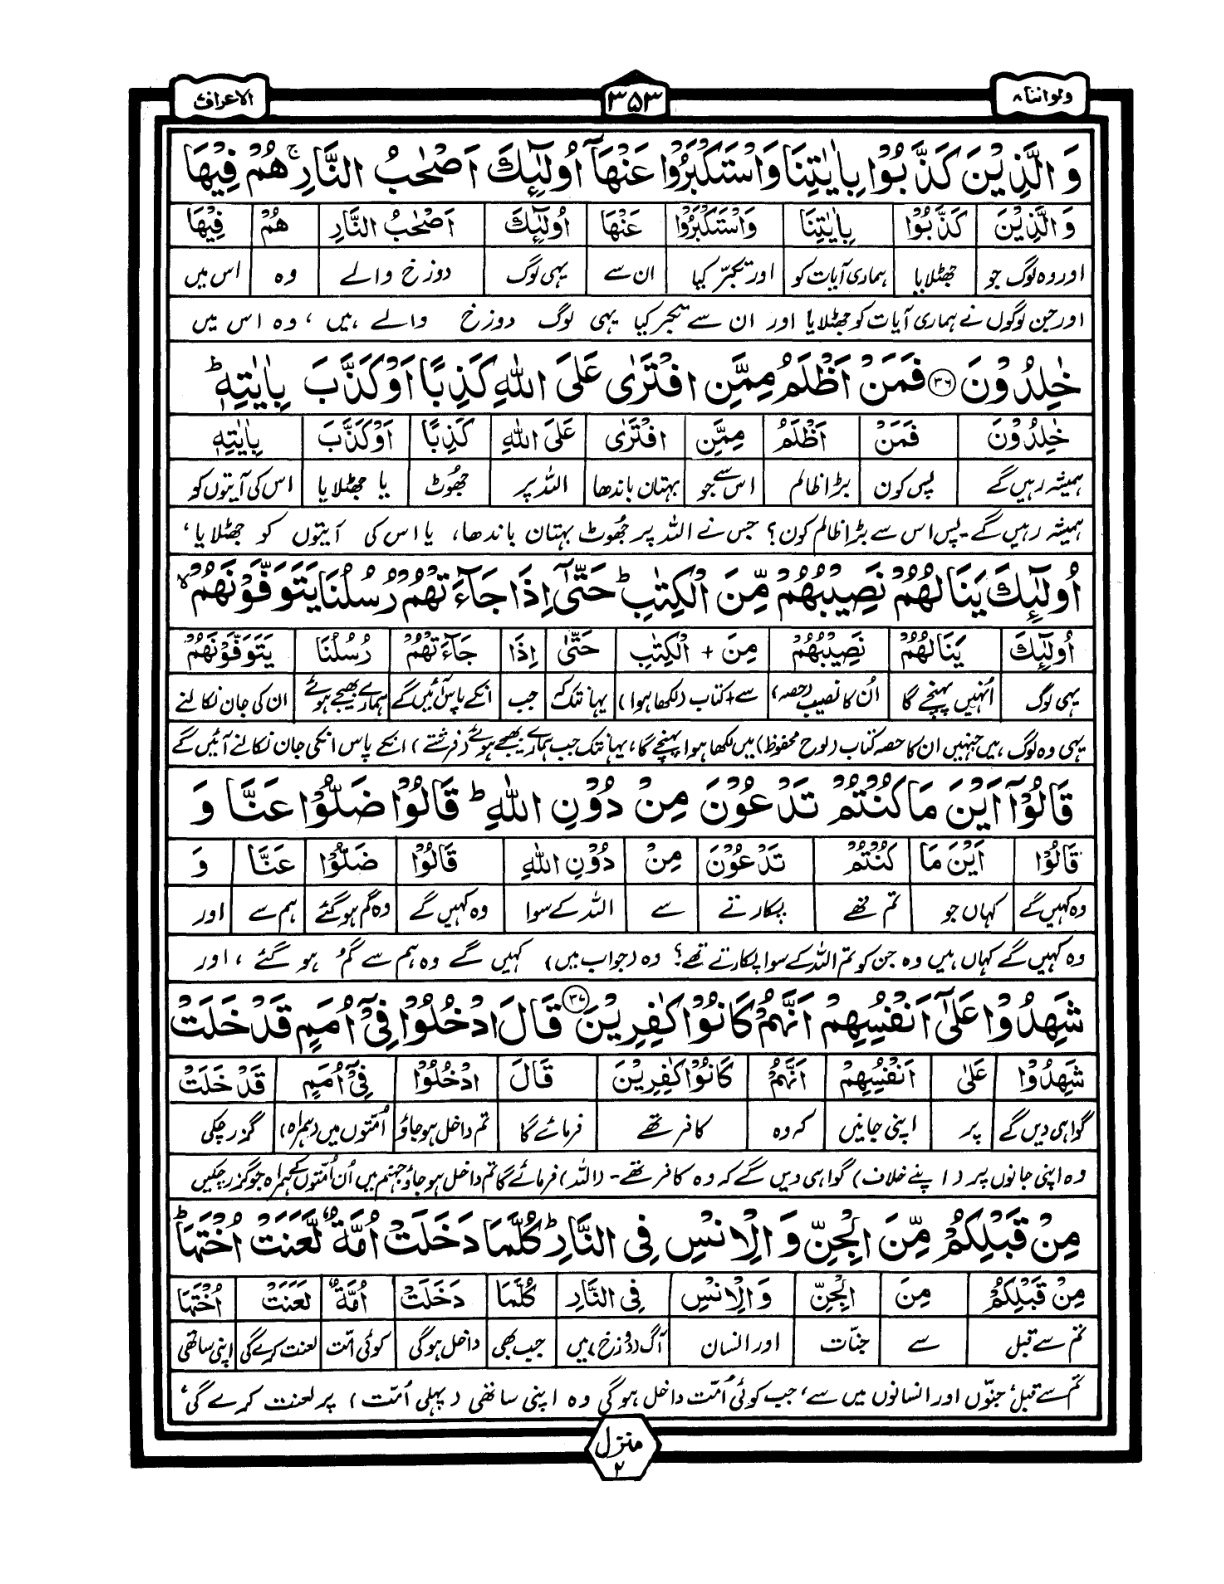 ولواننا ۸ ۳۵۳ الاعراف
وَالَّذِیْنَ كَذَّبُوْا بِاٰیٰتِنَا وَاسْتَكْبَرُوْا عَنْهَاۤ اُولٰٓىِٕكَ اَصْحٰبُ النَّارِ ۚ هُمْ فِیْهَا
وَالَّذِیْنَ كَذَّبُوْا بِاٰیٰتِنَا وَاسْتَكْبَرُوْا عَنْهَا اُولٰٓىِٕكَ اَصْحٰبُ النَّارِ هُمْ فِیْهَا
اور وہ لوگ جو جھٹلایا ہماری آیات کو اور تکبّر کیا ان سے یہی لوگ دوزخ والے وہ اس میں
اور جن لوگوں نے ہماری آیات کو جھٹلایا اور ان سے تکبّر کیا یہی لوگ دوزخ والے ہیں ، وہ اس میں
خٰلِدُوْنَ ۳۶ فَمَنْ اَظْلَمُ مِمَّنِ افْتَرٰی عَلَی اللّٰهِ كَذِبًا اَوْ كَذَّبَ بِاٰیٰتِهٖ ؕ
خٰلِدُوْنَ فَمَنْ اَظْلَمُ مِمَّنِ افْتَرٰی عَلَی اللّٰهِ كَذِبًا اَوْ كَذَّبَ بِاٰیٰتِهٖ
ہمیشہ رہیں گے پس کون بڑا ظالم اس سے جو بہتان باندھا اللہ پر جھُوٹ یا جھٹلایا اس کی آیتوں کو
ہمیشہ رہیں گے۔ پس اس سے بڑا ظالم کون؟ جس نے اللہ پر جھُوٹ بہتان باندھا، یا اس کی آیتوں کو جھٹلایا ،
اُولٰٓىِٕكَ یَنَالُهُمْ نَصِیْبُهُمْ مِّنَ الْكِتٰبِ ؕ حَتّٰۤی اِذَا جَآءَتْهُمْ رُسُلُنَا یَتَوَفَّوْنَهُمْ ۙ
اُولٰٓىِٕكَ یَنَالُهُمْ نَصِیْبُهُمْ مِنَ + الْكِتٰبِ حَتّٰی اِذَا جَآءَتْهُمْ رُسُلُنَا یَتَوَفَّوْنَهُمْ
یہی لوگ اُنہیں پہنچے گا اُن کا نصیب (حصہ) سے + کتاب (لکھا ہوا) یہانتک کہ جب انکے پاس آئیں گے ہمارے بھیجے ہوئے ان کی جان نکالنے
یہی وہ لوگ ہیں جنہیں ان کا حصہ کتاب (لوح محفوظ) میں لکھا ہوا پہنچے گا، یہانتک جب ہمارے بھیجے ہوئے (فرشتے) انکے پاس انکی جان نکالنے آئیں گے
قَالُوْۤا اَیْنَ مَا كُنْتُمْ تَدْعُوْنَ مِنْ دُوْنِ اللّٰهِ ؕ قَالُوْا ضَلُّوْا عَنَّا وَ
قَالُوْا اَیْنَ مَا كُنْتُمْ تَدْعُوْنَ مِنْ دُوْنِ اللّٰهِ قَالُوْا ضَلُّوْا عَنَّا وَ
وہ کہیں گے کہاں جو تم تھے پکارتے سے اللہ کے سوا وہ کہیں گے وہ گم ہو گئے ہم سے اور
وہ کہیں گے کہاں ہیں وہ جن کو تم اللہ کے سوا پکارتے تھے؟ وہ (جواب میں) کہیں گے وہ ہم سے گُم ہو گئے ، اور
شَهِدُوْا عَلٰۤی اَنْفُسِهِمْ اَنَّهُمْ كَانُوْا كٰفِرِیْنَ ۳۷ قَالَ ادْخُلُوْا فِیْۤ اُمَمٍ قَدْ خَلَتْ
شَهِدُوْا عَلٰی اَنْفُسِهِمْ اَنَّهُمْ كَانُوْا كٰفِرِیْنَ قَالَ ادْخُلُوْا فِیْۤ اُمَمٍ قَدْ خَلَتْ
گواہی دیں گے پر اپنی جانیں کہ وہ کافر تھے فرمائے گا تم داخل ہو جاؤ اُمتوں میں (ہمراہ) گزر چکی
وہ اپنی جانوں پر (اپنے خلاف) گواہی دیں گے کہ وہ کافر تھے۔ (اللہ) فرمائے گا تم داخل ہو جاؤ جہنم میں اُن اُمتوں کے ہمراہ جو گزر چکیں
مِنْ قَبْلِكُمْ مِّنَ الْجِنِّ وَالْاِنْسِ فِی النَّارِ ؕ كُلَّمَا دَخَلَتْ اُمَّةٌ لَّعَنَتْ اُخْتَهَا ؕ
مِنْ قَبْلِكُمْ مِنَ الْجِنِّ وَالْاِنْسِ فِی النَّارِ كُلَّمَا دَخَلَتْ اُمَّةٌ لَعَنَتْ اُخْتَهَا
تم سے قبل سے جنّات اور انسان آگ (دوزخ) میں جب بھی داخل ہوگی کوئی امت لعنت کرے گی اپنی ساتھی
تم سے قبل ، جنّوں اور انسانوں میں سے ، جب کوئی اُمّت داخل ہو گی وہ اپنی ساتھی (پہلی اُمّت) پر لعنت کرے گی ،
منزل ۲